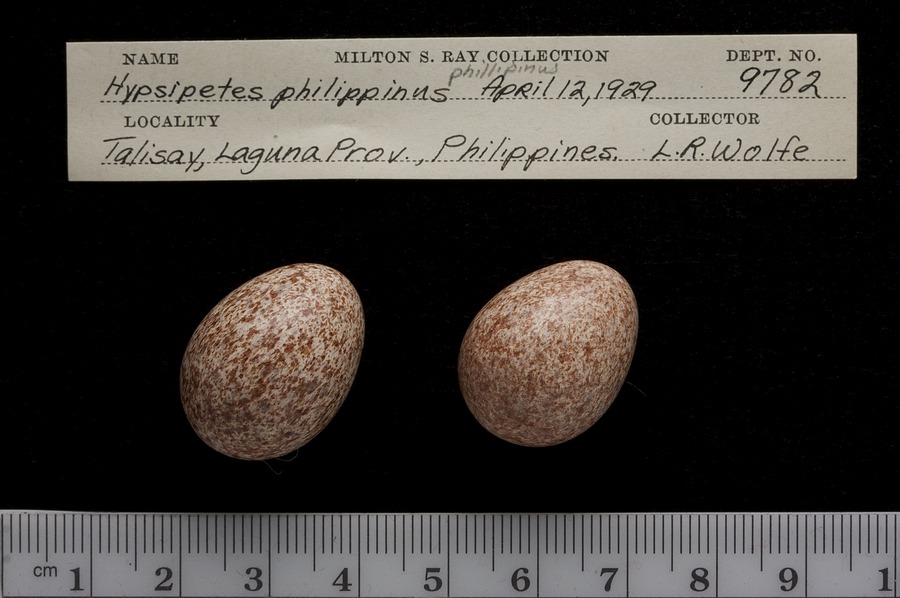 NAME MILTON S. RAY COLLECTION DEPT. NO.
phillipinus
Hypsipetes philippinus April 12, 1929 9782
LOCALITY COLLECTOR
Talisay, Laguna Prov., Philippines. L.R. Wolfe
cm 1 2 3 4 5 6 7 8 9 1